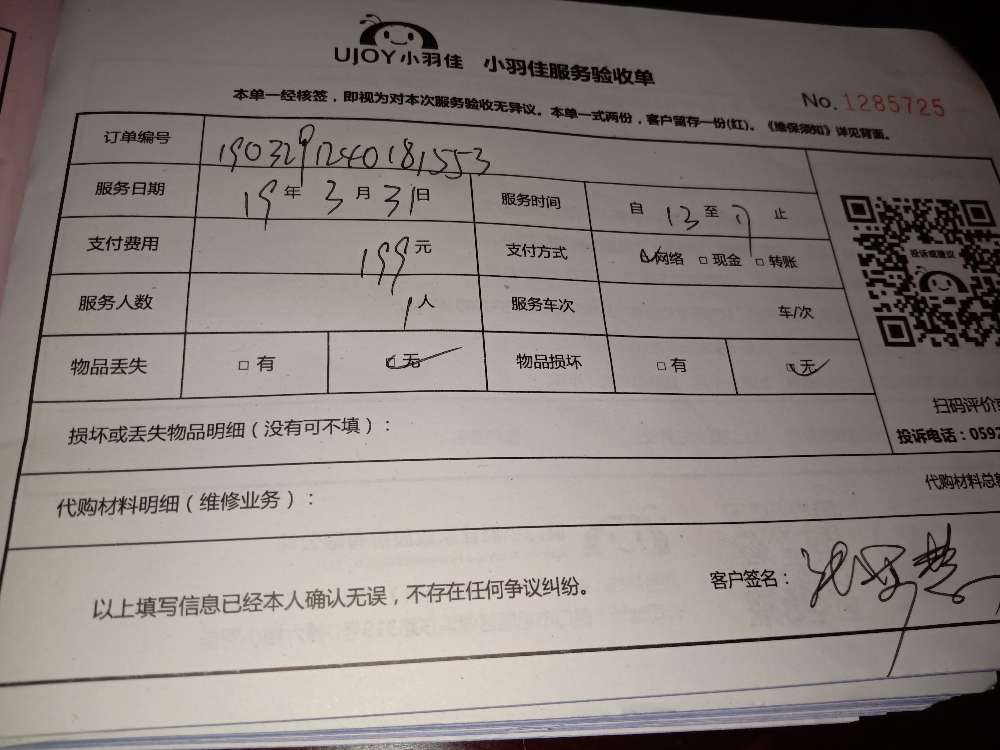 UJOY小羽佳 小羽佳服务验收单
No.1285725
本单一经核签，即视为对本次服务验收无异议。本单一式两份，客户留存一份(红)。《维保须知》详见背面。
订单编号 1903291240181553
服务日期 19年3月31日 服务时间 自13至17止
支付费用 199元 支付方式 ☑网络 □现金 □转账
服务人数 1人 服务车次 车/次
物品丢失 □有 ☑无 物品损坏 □有 ☑无
投诉或建议
扫码评价
损坏或丢失物品明细（没有可不填）：
投诉电话：0592
代购材料明细（维修业务）：
代购材料总
以上填写信息已经本人确认无误，不存在任何争议纠纷。
客户签名：